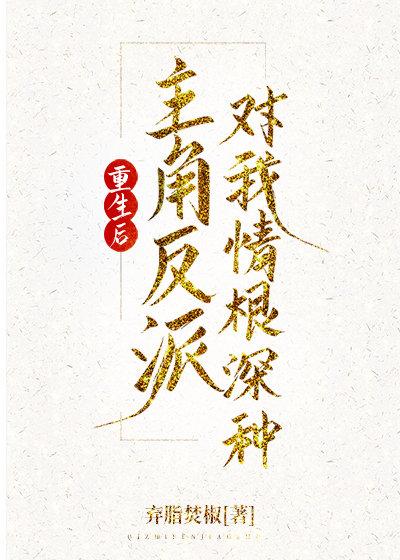 重生后
主角反派
对我情根深种
弃脂焚椒[著]
QIZHIFENJIAOZHU